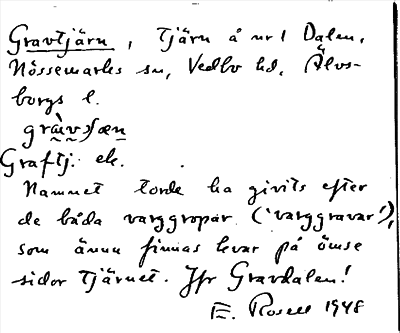 Gravtjärn, tjärn å nr 1 Dalen,
Nössemarks sn, Vedbo hd, Älvs-
borgs l.
Graftj. ek.
Namnet torde ha givits efter
de båda varggropar ('varggravar'),
som ännu finnas kvar på ömse
sidor tjärnet. Jfr Gravdalen!
E. Rosell 1948